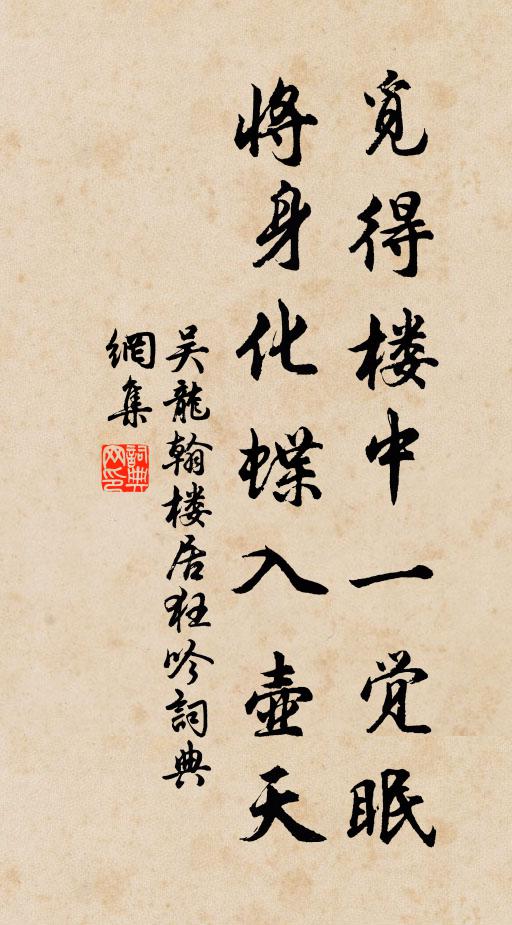 觅得楼中一觉眠
将身化蝶入壶天
吴龍翰楼居狂吟詞典
網集
詞典
网印